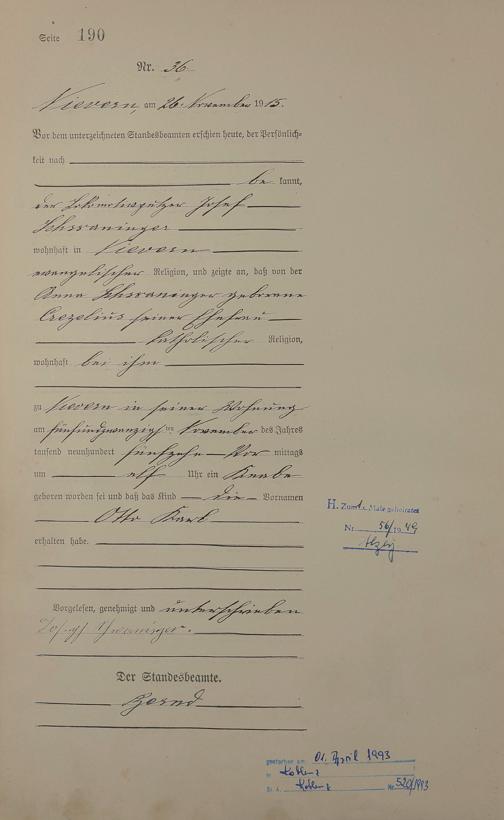 Seite 190
Nr. 36
Nievern, am 26. November 1915.
Vor dem unterzeichneten Standesbeamten erschien heute, der Persönlich-
keit nach
be kannt,
der Lokomotivputzer Josef
Schwaninger
wohnhaft in Nievern
evangelischer Religion, und zeigte an, daß von der
Anna Schwaninger geborene
Crezelius seiner Ehefrau
katholischer Religion,
wohnhaft bei ihm
zu Nievern in seiner Wohnung
am fünfundzwanzigsten November des Jahres
tausend neunhundert fünfzehn Vor mittags
um elf Uhr ein Knabe
geboren worden sei und daß das Kind die Vornamen
Otto Karl
erhalten habe.
Vorgelesen, genehmigt und unterschrieben
Josef Schwaninger.
Der Standesbeamte.
H. Zum 1. Male geheiratet
Nr. 56/1949
Alzey
gestorben am 01. April 1993
in Koblenz
St. A. Koblenz Nr. 520/1993